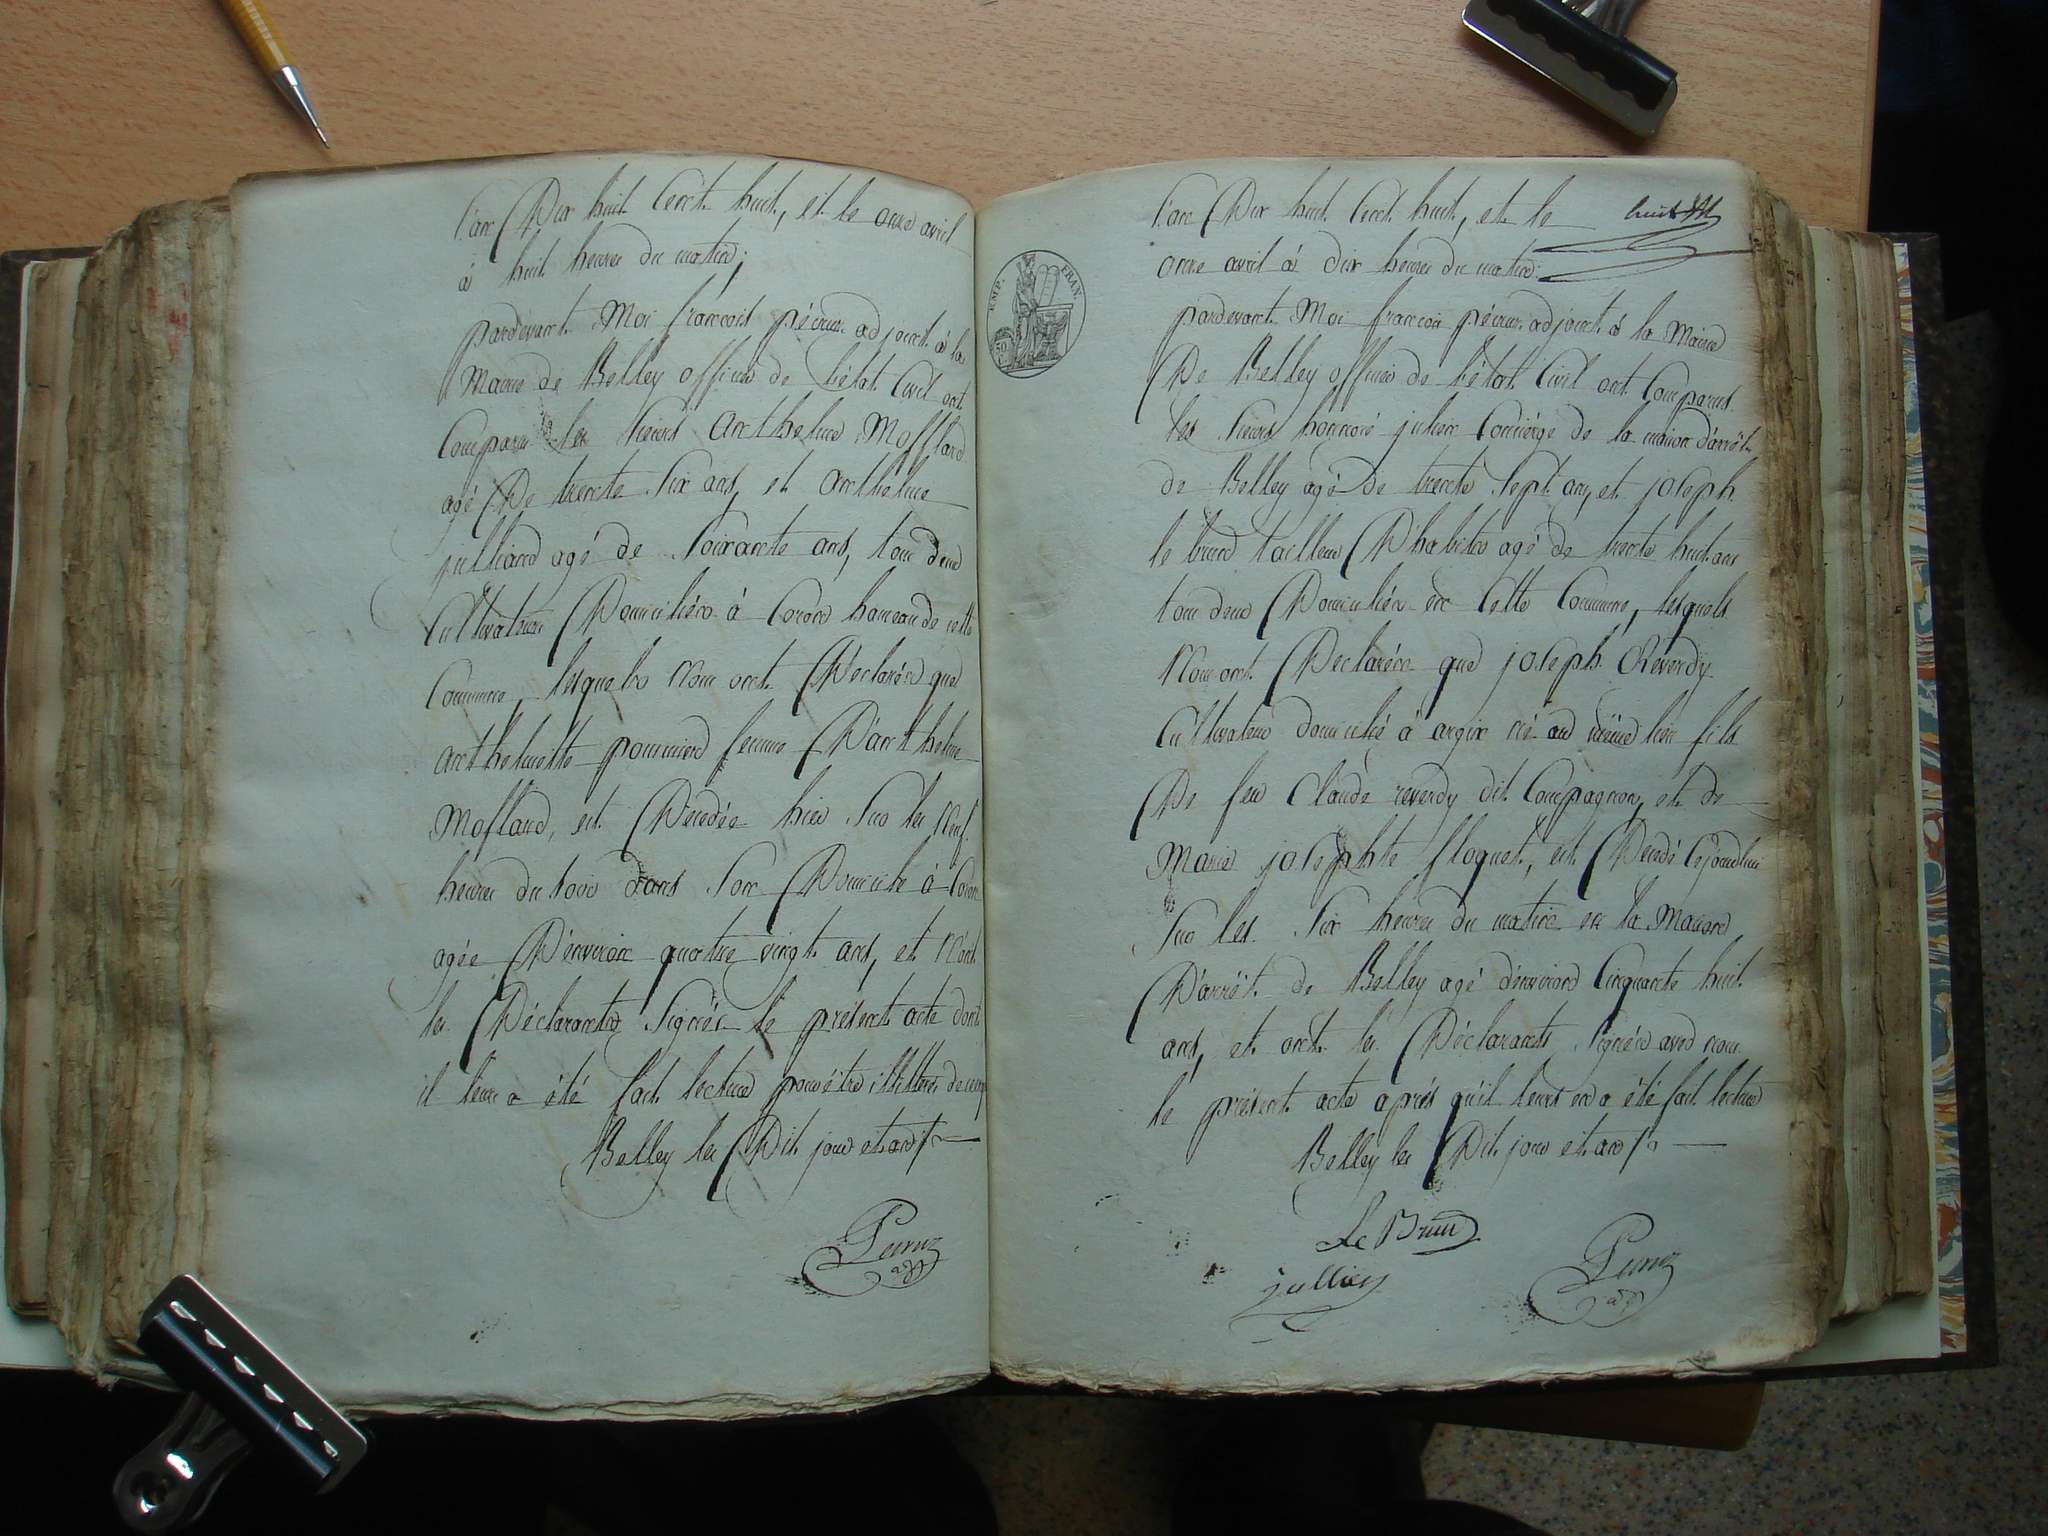 l'an Dix huit Cent huit, et le onze avril
à huit heures du matin;
pardevant Moi françois pécour adjoint à la
Mairie de Belley officier de l'état Civil ont
Comparu les sieurs Anthelme Mollard
agé De trente six ans, et anthelme
julliand agé de soixante ans, tous deux
Cultivateurs Domiciliés à Coron hameau de cette
Commune, lesquels Nous ont Déclarés que
anthelmette pommier femme D'anthelme
Mollard, est Décédée hier sur les neuf
heures du soir dans son Domicile à Coron
agée D'environ quatre vingt ans, et n'ont
les Déclarants signés le présent acte dont
il leur a été fait lecture pour être illitterés de
Belley les Dit jour et an
adjt
l'an Dix huit Cent huit, et le
onze avril à dix heures du matin;
EMP. FRAN.
50
pardevant Moi françois pécour adjoint à la Mairie
De Belley officier de l'état Civil ont Comparus
les sieurs honnoré julien Conciérge de la maison d'arrêt
de Belley agé De trente sept ans, et joseph
le brun tailleur D'habits agé de trente huit ans
tous deux Domiciliés en cette Commune, lesquels
Nous ont Déclarés que joseph Réverdy
Cultivateur domicilié à argix né au même lieu fils
De feu Claude reverdy dit Compagnon, et de
Marie josephte floquet, est Décédé Cejourdhui
sur les six heures du matin en la Maison
D'arrêt de Belley agé d'environ Cinquante huit
ans, et ont les Déclarants signés avec nous
le présent acte après qu'il leurs en a été fait lecture
Belley les Dit jour et an
Le Brun
jullien
adjt